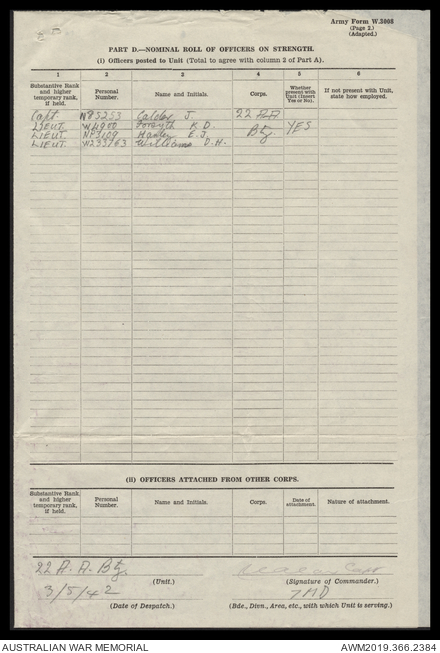 Army Form W.3008
(Page 2.)
(Adapted.)
PART D.—NOMINAL ROLL OF OFFICERS ON STRENGTH.
(i) Officers posted to Unit (Total to agree with column 2 of Part A).
1 2 3 4 5 6
Substantive Rank and higher temporary rank, if held. Personal Number. Name and Initials. Corps. Whether present with Unit (Insert Yes or No). If not present with Unit, state how employed.
Capt J. 22
LIEUT. Forsyth K. D. Bty. YES
LIEUT. E. J.
LIEUT. W233763 Williams D. H.
(ii) OFFICERS ATTACHED FROM OTHER CORPS.
Substantive Rank and higher temporary rank, if held. Personal Number. Name and Initials. Corps. Date of attachment. Nature of attachment.
22 A. A. Bty. Capt
(Unit.) (Signature of Commander.)
3/5/42 7MD
(Date of Despatch.) (Bde., Divn., Area, etc., with which Unit is serving.)
AUSTRALIAN WAR MEMORIAL AWM2019.366.2384